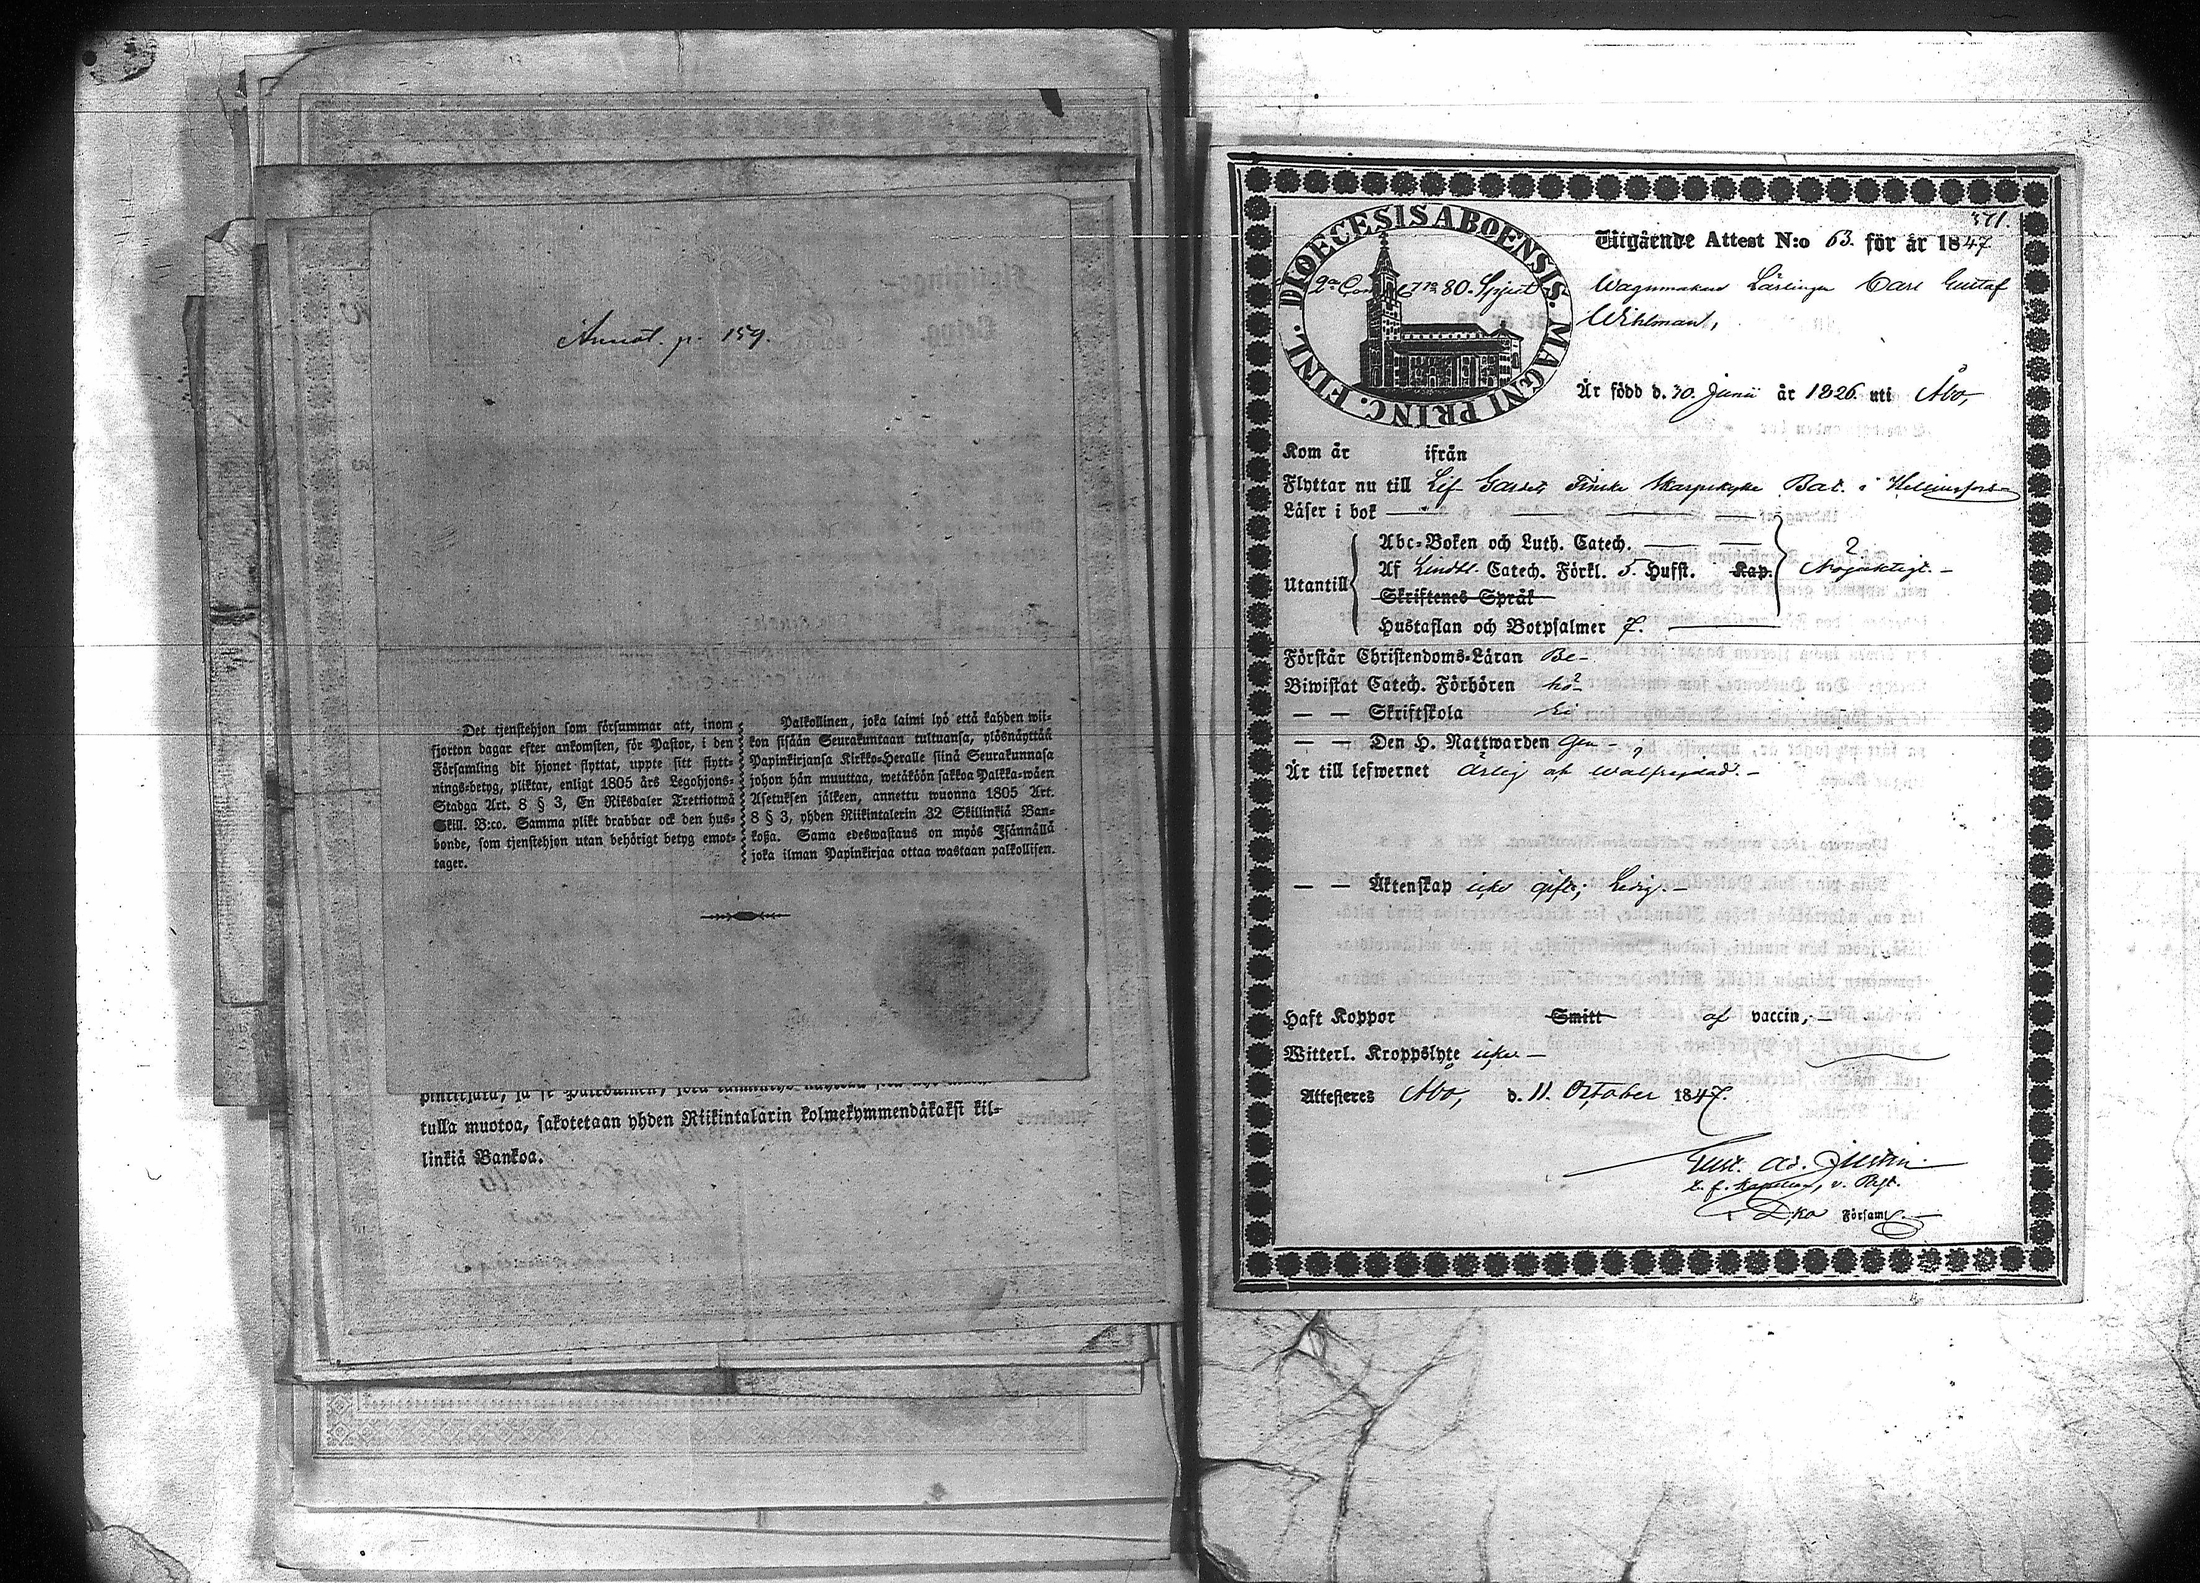 Annot. p. 159.
Det tjenstehjon som försummar att, inom
fjorton dagar efter ankomsten, för Pastor, i den
Församling dit hjonet flyttat, uppte sitt flytt-
nings-betyg, pliktar, enligt 1805 års Legohjons-
Stadga Art. 8 § 3, En Riksdaler Trettiotwå
Skill. B:co. Samma plikt drabbar ock den hus-
bonde, som tjenstehjon utan behörigt betyg emot-
tager.
Palkollinen, joka laimi lyö että kahden wii-
kon sisään Seurakuntaan tultuansa, ylösnäyttää
Papinkirjansa Kirkko-Heralle siinä Seurakunnasa
johon hän muuttaa, wetäköön sakkoa Palkka-wäen
Asetuksen jälkeen, annettu wuonna 1805 Art.
8 § 3, yhden Riikintalerin 32 Skillinkiä Ban-
koßa. Sama edeswastaus on myös Isännällä
joka ilman Papinkirjaa ottaa wastaan palkollisen.
tulla muotoa, sakotetaan yhden Riikintalarin kolmekymmendäkaksi kil-
linkiä Bankoa.
371.
DIOECESIS ABOENSIS. MAGNI PRINC. FINL.
Utgående Attest N:o 63. för år 1847
Wagnmakare Lärlingen Carl Gustaf
Wihlman,
Är född d. 30. Junii år 1826. uti Åbo,
Kom år ifrån
Flyttar nu till Lif Gardets Finske Skarpskytte Bat. i Helsingfors
Läser i bok
Utantill
Abc-Boken och Luth. Catech.
Af Lindbl. Catech. Förkl. 5. Hufst. Kap.
Nöjaktigt. -
Skriftenes Språk
Hustaflan och Botpsalmer 7.
Förstår Christendoms-Läran Be-
Biwistat Catech. Förhören
— — Skriftskola
— — Den H. Nattwarden
Är till lefwernet ärlig och wälfrejdad. -
— — Äktenskap icke gift; Ledig. -
Haft Koppor Smitt af vaccin, -
Witterl. Kroppslyte icke -
Attesteres Åbo, d. 11. October 1847.
Gust. Ad.
Församl.